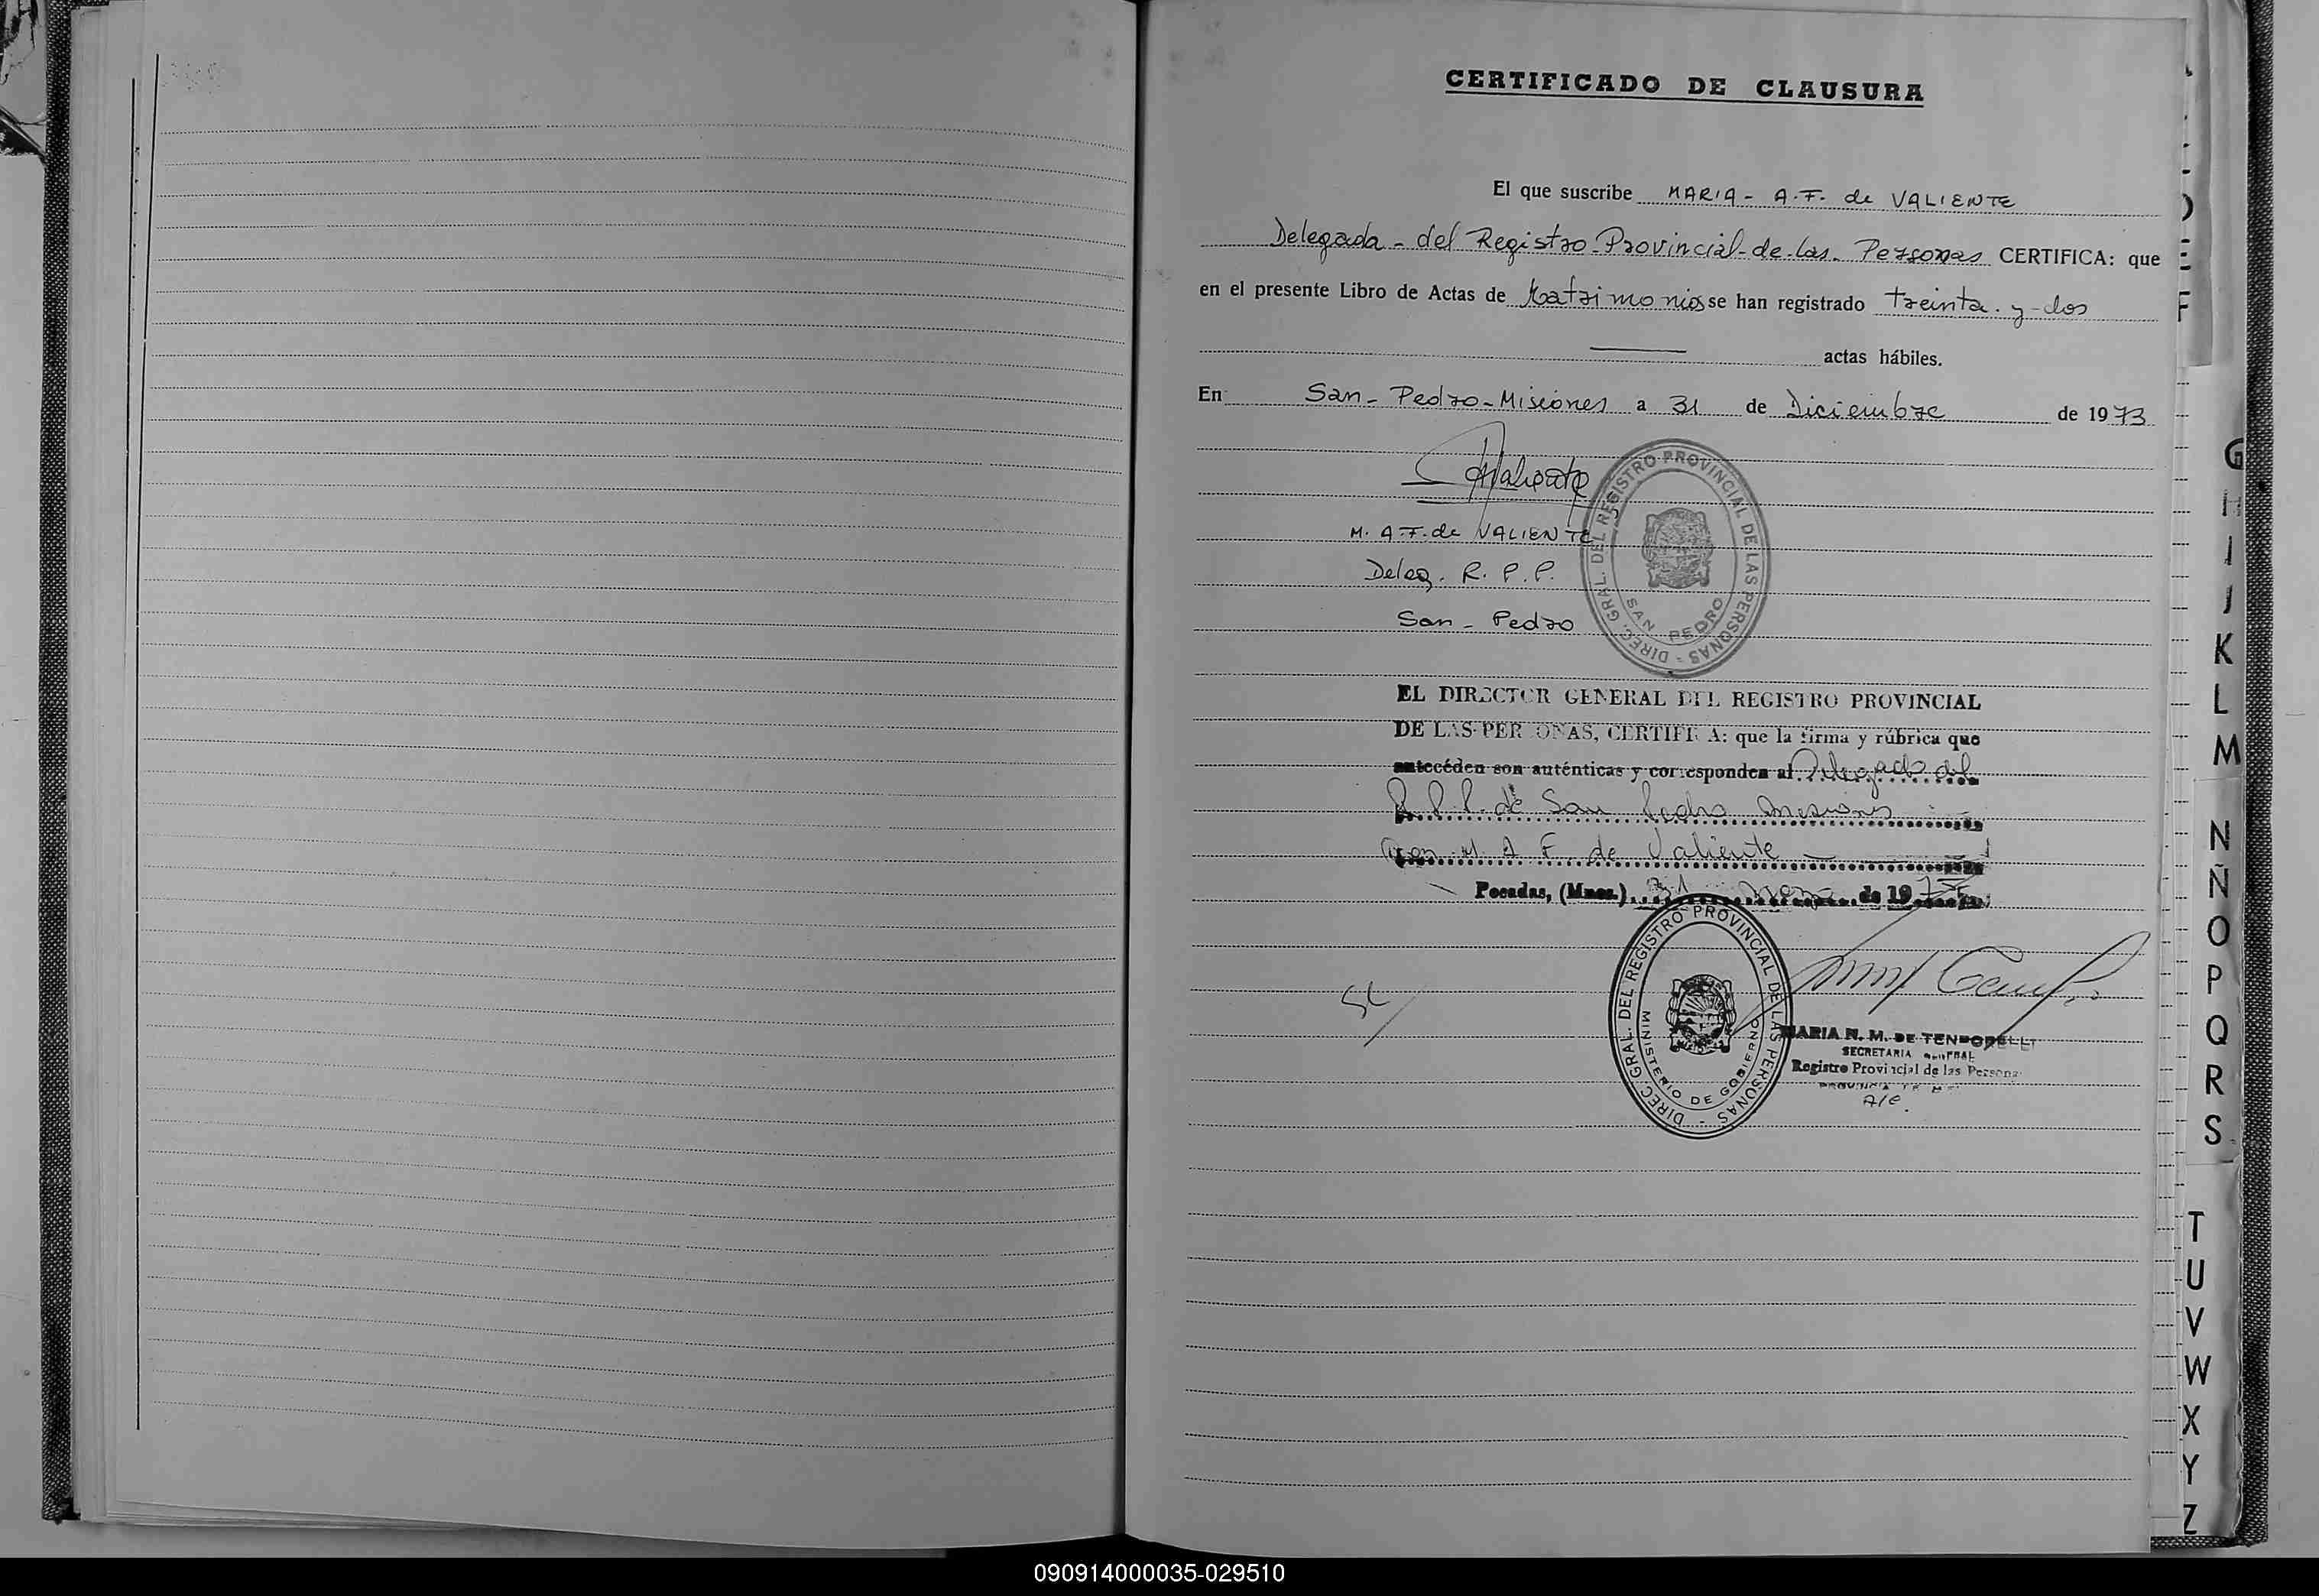 CERTIFICADO DE CLAUSURA
El que suscribe MARIA - A.F. de VALIENTE
Delegada - del Registro Provincial - de - las - Personas CERTIFICA: que
en el presente Libro de Actas de Matrimonios se han registrado treinta y dos
actas hábiles.
En San - Pedro - Misiones a 31 de Diciembre de 1973
M. A.F. de VALIENTE
Deleg. R. P. P.
San - Pedro
DIREC. GRAL. DEL REGISTRO PROVINCIAL DE LAS PERSONAS
SAN PEDRO
EL DIRECTOR GENERAL DEL REGISTRO PROVINCIAL
DE LAS PERSONAS, CERTIFICA: que la firma y rúbrica que
anteceden son auténticas y corresponden al Delegado del
R.P.P. de San Pedro Misiones
M. A. F. de Valiente
Posadas, (Mnes.) 31 de 19
DIREC. GRAL. DEL REGISTRO PROVINCIAL DE LAS PERSONAS
MINISTERIO DE GOBIERNO
MARIA N. M. DE
SECRETARIA GENERAL
Registro Provincial de las Personas
A/C.
F
G
H
I
J
K
L
M
N
Ñ
O
P
Q
R
S
T
U
V
W
X
Y
Z
090914000035-029510